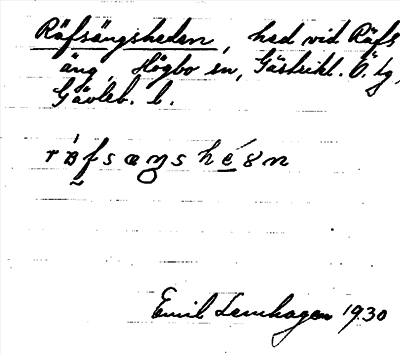 Räfsängsheden, hed vid Räfs
äng, Högbo sn, Gästrikl. Ö. tg,
Gävleb. l.
Emil Lenhagen 1930